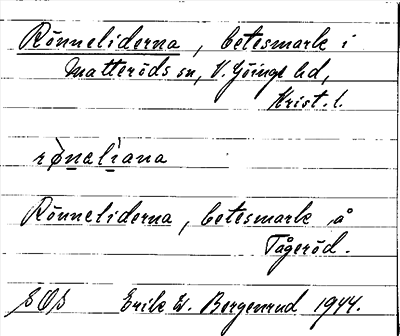 Rönneliderna, betesmark i
Matteröds sn, V. Göinge hd,
Krist. l.
rø̀naliana
Rönneliderna, betesmark å
Tågeröd.
Erik W. Bergenrud 1944.